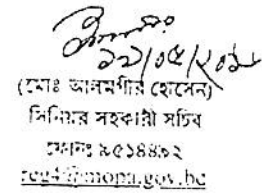 ১৯/০৫/২০১৯
(মোঃ আলমগীর হোসেন)
সিনিয়র সহকারী সচিব
ফোনঃ ৯৫১৪৪৯২
reg4@mopa.gov.bd